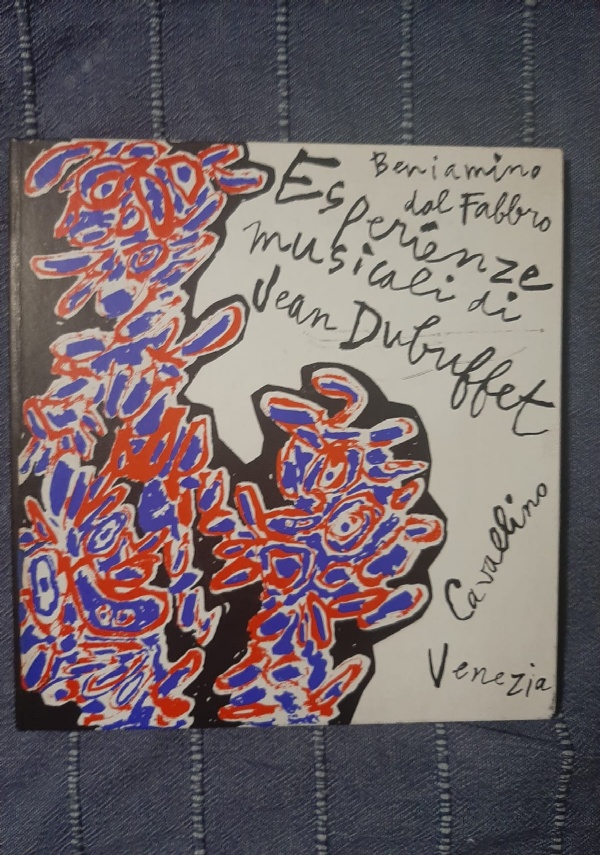 Beniamino
dal Fabbro
Esperienze
musicali di
Jean Dubuffet
Cavallino
Venezia